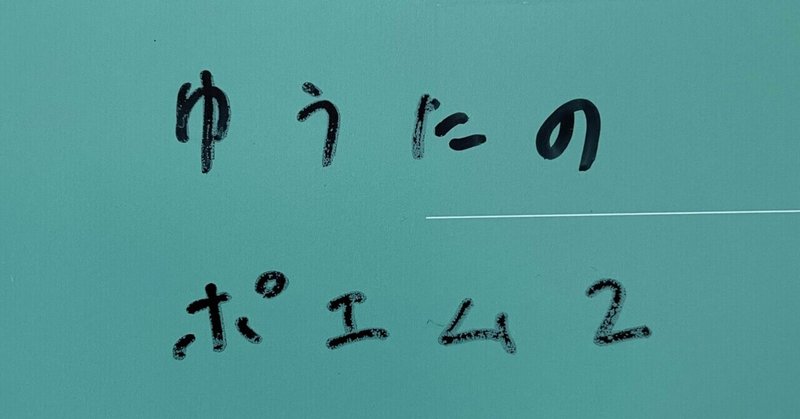 ゆうたの
ポエム2